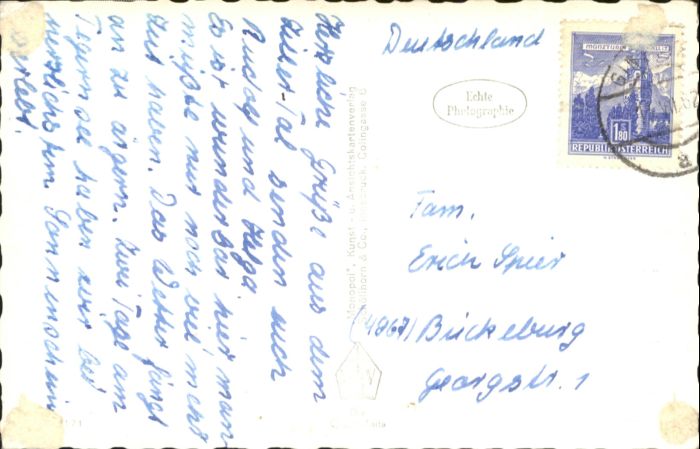 Herzliche Grüße aus dem
Ziller-Tal senden euch
Rudolf und Helga.
Es ist wunderbar hier man
müßte nur noch viel mehr
Zeit haben. Das Wetter fängt
an zu ärgern. Zwei Tage am
Tegernsee haben wir bei
herrlichstem Sonnenschein
verlebt.
Deutschland
Echte
Photographie
MÜNZTURM HALL I. T.
1.80
REPUBLIK ÖSTERREICH
"Monopol", Kunst- u. Ansichtskartenverlag
& Co., Innsbruck, Colingasse
Fam.
Erich Spier
(4967) Bückeburg
Georgstr. 1